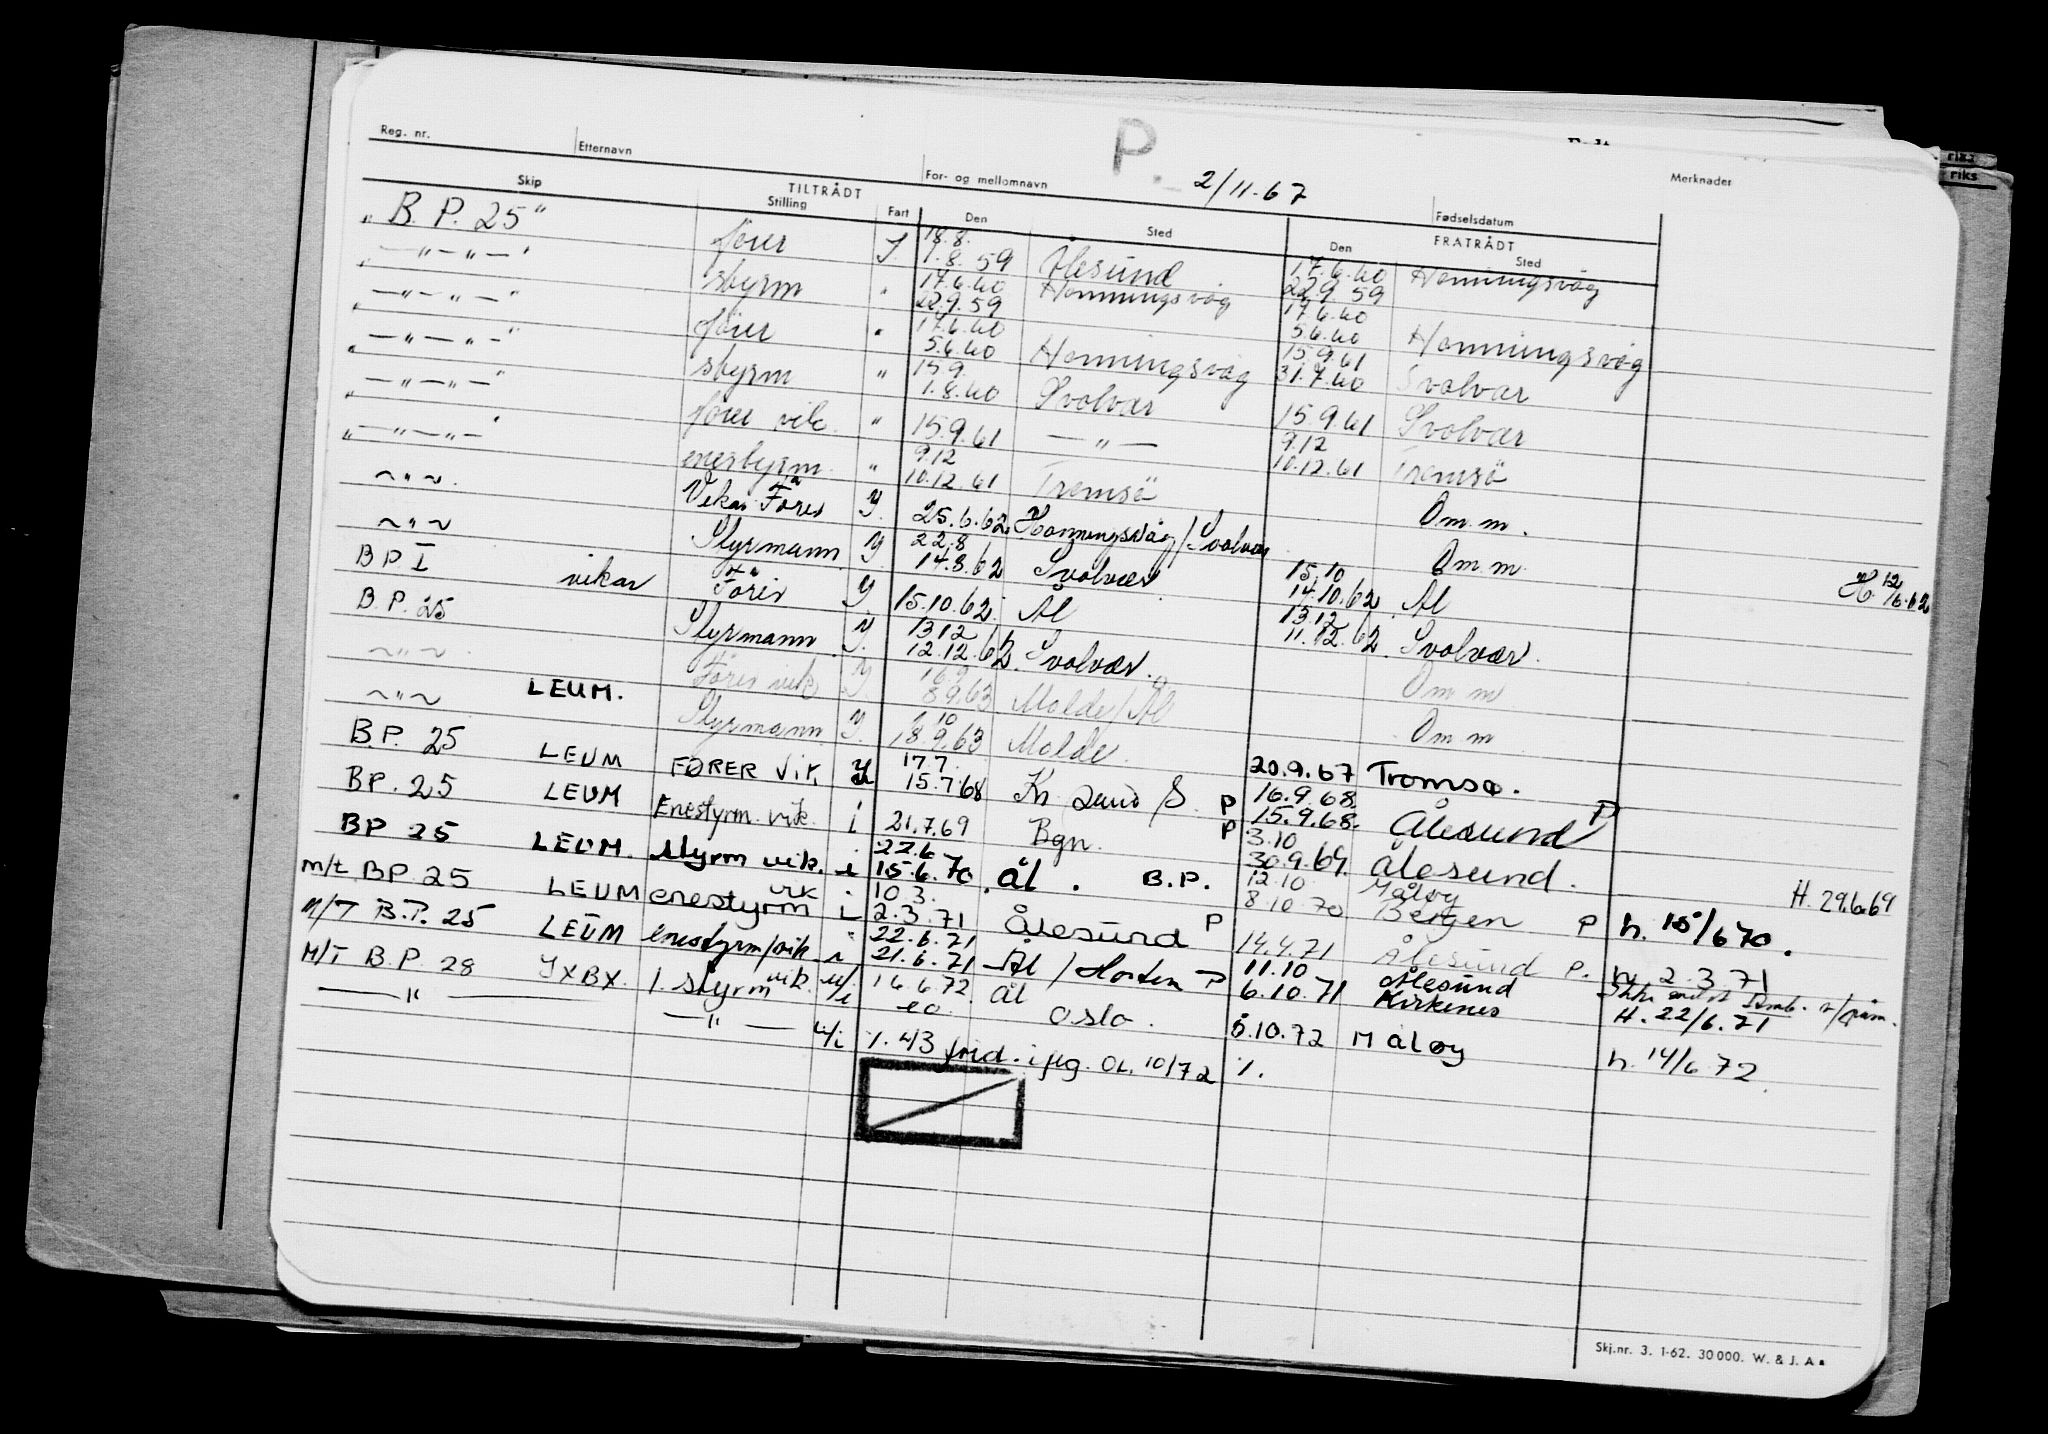 Reg. nr. Etternavn For- og mellomnavn P. 2/11-67 Fødselsdatum Merknader riks riks
TILTRÅDT FRATRÅDT
Skip Stilling Fart Den Sted Den Sted
„B. P. 25“ fører I 18.8. 1.8.59 Ålesund 17.6.60 22.9.59 Honningsvåg
„—"—"—" styrm " 17.6.60 22.9.59 Honningsvåg 17.6.60 5.6.60 Honningsvåg
„—"—"—" fører " 17.6.60 5.6.60 Honningsvåg 15.9.61 31.7.60 Svolvær
„—"—"—" styrm " 15.9. 1.8.60 Svolvær 15.9.61 Svolvær
„—"—"—" fører vik. " 15.9.61 —"— 9.12 10.12.61 Tromsö
„—"—"—" enestyrm. " 9.12 10.12.61 Tromsö Om m.
~"~. Vikar Fører Y. 25.6.62 Honningsvåg/Svolvær Om m H. 12/6.62
~"~ Styrmann Y 22.8 14.8.62 Svolvær 15.10 14.10.62 Ål
B P I vikar Fører Y 15.10.62 Ål 13.12 11.12.62 Svolvær.
B. P. 25 Styrmann Y. 13.12 12.12.62 Svolvær. Om m
~"~. Fører vik Y. 8.9.63 Molde/Ål Om m
~"~ LEUM. Styrmann Y. 18.9.63 Molde. 20.9.67 Tromsø.
B.P. 25 LEUM FØRER Vik. Y 17.7. 15.7.68 Kr. Sund S. P 16.9.68. 15.9.68. Ålesund P
BP. 25 LEUM Enestyrm. vik. i 21.7.69 Bgn. P 3.10 30.9.69. Ålesund. H. 29.6.69
BP 25 LEUM. styrm vik. i 22.6 15.6.70. Ål. B.P. 12.10 8.10.70 Måløy Bergen P h. 15/6 70.
m/t BP 25 LEUM enestyrm vik i 10.3. 2.3.71 Ålesund P 14.4.71 Ålesund P. h. 2.3.71
M/T B.P. 25 LEUM enestyrm/vik i 22.6.71 21.6.71 Ål / Horten P 11.10 6.10.71 Ålesund Kirkenes H. 22/6.71
M/T B.P. 28 JXBX. 1. styrm vik. u/i 16 6 72 Ål 6.10.72 Måløy h. 14/6 72.
—"— —"— u/i eo Oslo.
%. 43 fnd. i flg. 10/72 %.
Skj.nr. 3. 1-62. 30 000. W. & J. A